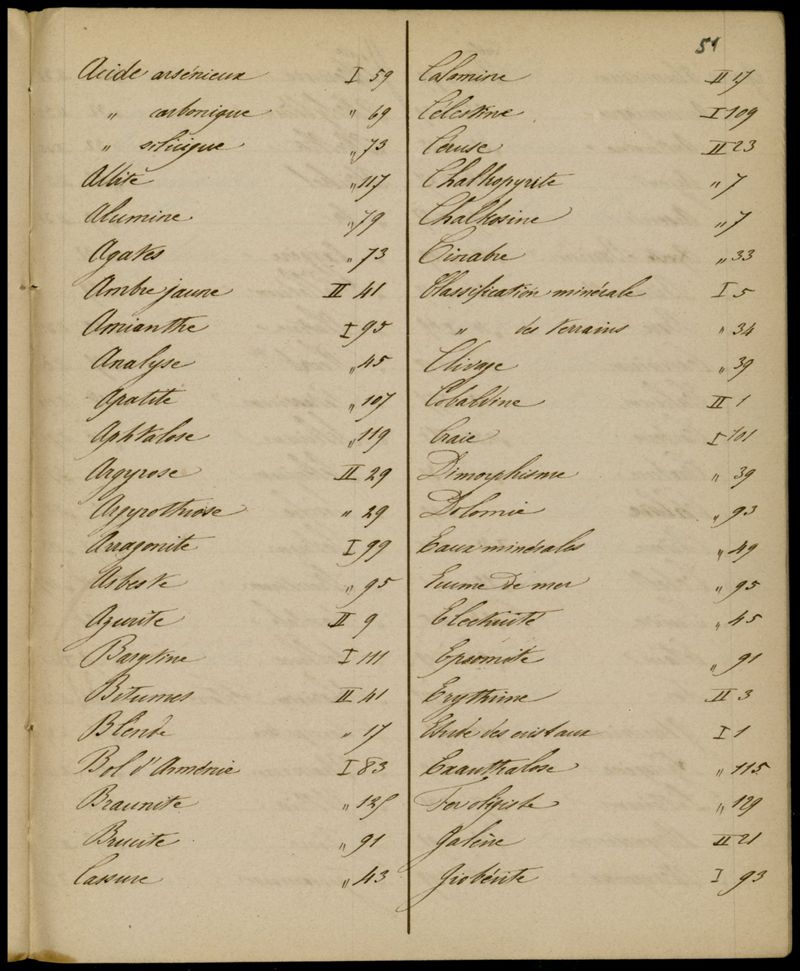 51
Acide arsénieux I 59
" carbonique " 69
" silicique " 73
Allite " 117
Alumine " 79
Agates " 73
Ambre jaune II 41
Amianthe I 95
Analyse " 45
Apatite " 107
Aphtalose " 119
Argyrose II 29
Argyrothrose " 29
Arragonite I 99
Asbeste " 95
Azurite II 9
Barytine I 111
Bitumes II 41
Blende " 17
Bol d'Arménie I 83
Braunite " 125
Brucite " 91
Cassure " 43
Calamine II 17
Célestine I 109
Céruse II 23
Chalkopyrite " 7
Chalkosine " 7
Cinabre " 33
Classification minérale I 5
" des terrains " 34
Clivage " 39
Cobaltine II 1
Craie I 101
Dimorphisme " 39
Dolomie " 93
Eaux minérales " 49
Ecume de mer " 95
Electricité " 45
Epsomite " 91
Erythrine II 3
Etude des cristaux I 1
Exanthalose " 115
Fer oligiste " 129
Galène II 21
Giobertite I 93